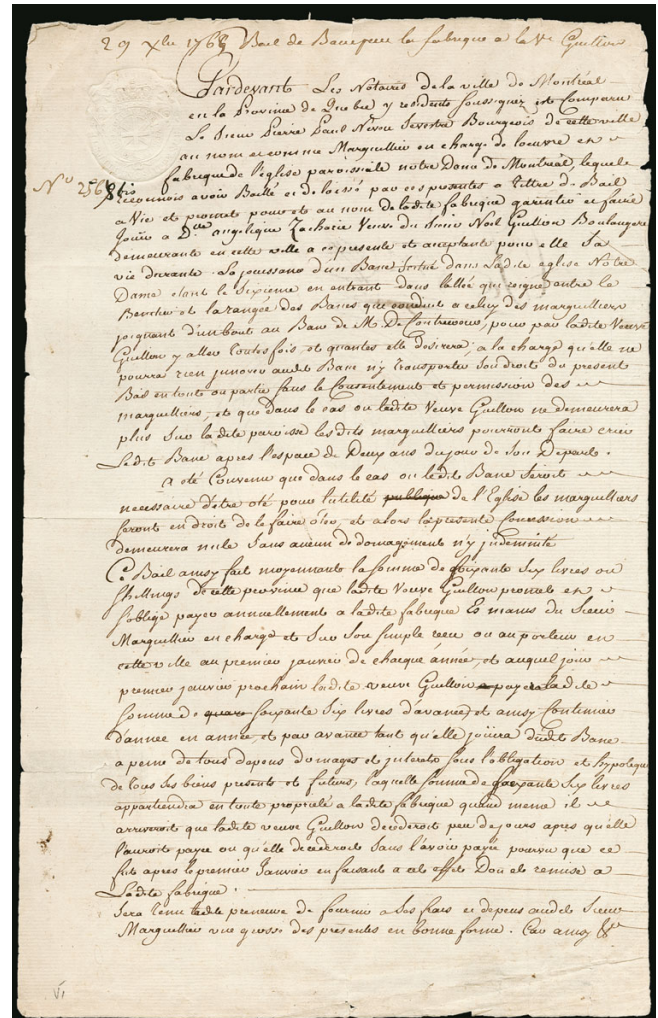 29 Xbre 176 Bail de Banc par la fabrique a la Ve Guillon
Pardevant Les Notaires de la ville de Montréal
en la Province de Quebec y residents soussignez est Comparu
Le Sieur Pierre Paul Sevestre Bourgeois de cette ville
au nom et comme Marguillier en charge de loeuvre et
fabrique de l'eglise paroissiale notre Dame de Montreal, lequel
No 2568 bis
reconnois avoir Baillé et delaissé par ces presentes a tittre de Bail
a Vie et promet pour et au nom de ladite fabrique garentir et faire
Jouir a Dlle angelique Zacharie Veuve du Sieur Noël Guillon Boulangere
demeurante en cette ville a ce presente et acceptante pour elle Sa
vie durante. La jouissance d'un Banc Scitué dans Ladite eglise Notre
Dame etant le Sixieme en entrant dans l'allée qui regne entre le
Bencher et la rangée des Bancs que conduit a celuy des marguilliers
joignant d'un bout au Banc de M. De Contrecoeur, pour par ladite Veuve
Guillon y aller toutes fois, et quantes elle desirera, a la charge qu'elle ne
pourra rien innover audit Banc n'y transporter Son droit du present
Bail en tout ou partie sans le Consentement et permission des
marguilliers, et que dans le cas ou ladite Veuve Guillon ne demeurera
plus Sur ladite paroisse les dits marguilliers pourront faire crier
Ledit Banc apres l'espace de Deux ans du jour de Son Depart.
a été Convenu que dans le cas ou ledit Banc Seroit
necessaire d'être oté pour l'utilité publique de l'Eglise les marguilliers
seront en droit de le faire ôter, et alors la presente Concession
demeurera nule Sans aucun dedomagement n'y indemnité
Ce Bail ainsy fait moyennant la somme de Soixante Six livres ou
Shillings de cette province que ladite Veuve Guillon promet et
S'oblige payer annuellement a ladite fabrique Es mains du Sieur
Marguillier en charge et Sur Son Simple recu ou au porteur en
cette ville au premier janvier de chaque année, et auquel jour
premier janvier prochain ladite veuve Guillon payera ladite
Somme de Soixante Six livres d'avance, et ainsy Continuer
d'année en année, et par avance tant qu'elle jouira dudit Banc
a peine de tous depens domages et interets Sous l'obligation et hypoteque
de tous Ses biens presents et futurs, laquelle Somme de Soixante Six livres
appartiendra en toute proprieté a ladite fabrique quand meme il
arriveroit que ladite veuve Guillon decederoit peu de jours apres qu'elle
l'auroit payée ou qu'elle decederoit Sans l'avoir payée pourvu que ce
fut apres le premier Janvier en faisant a cet effet Don et remise a
Ladite fabrique.
Sera tenue ladite preneuse de fournir a Ses frais et depens audit Sieur
Marguillier une grosse des presentes en bonne forme. Car ainsy &c